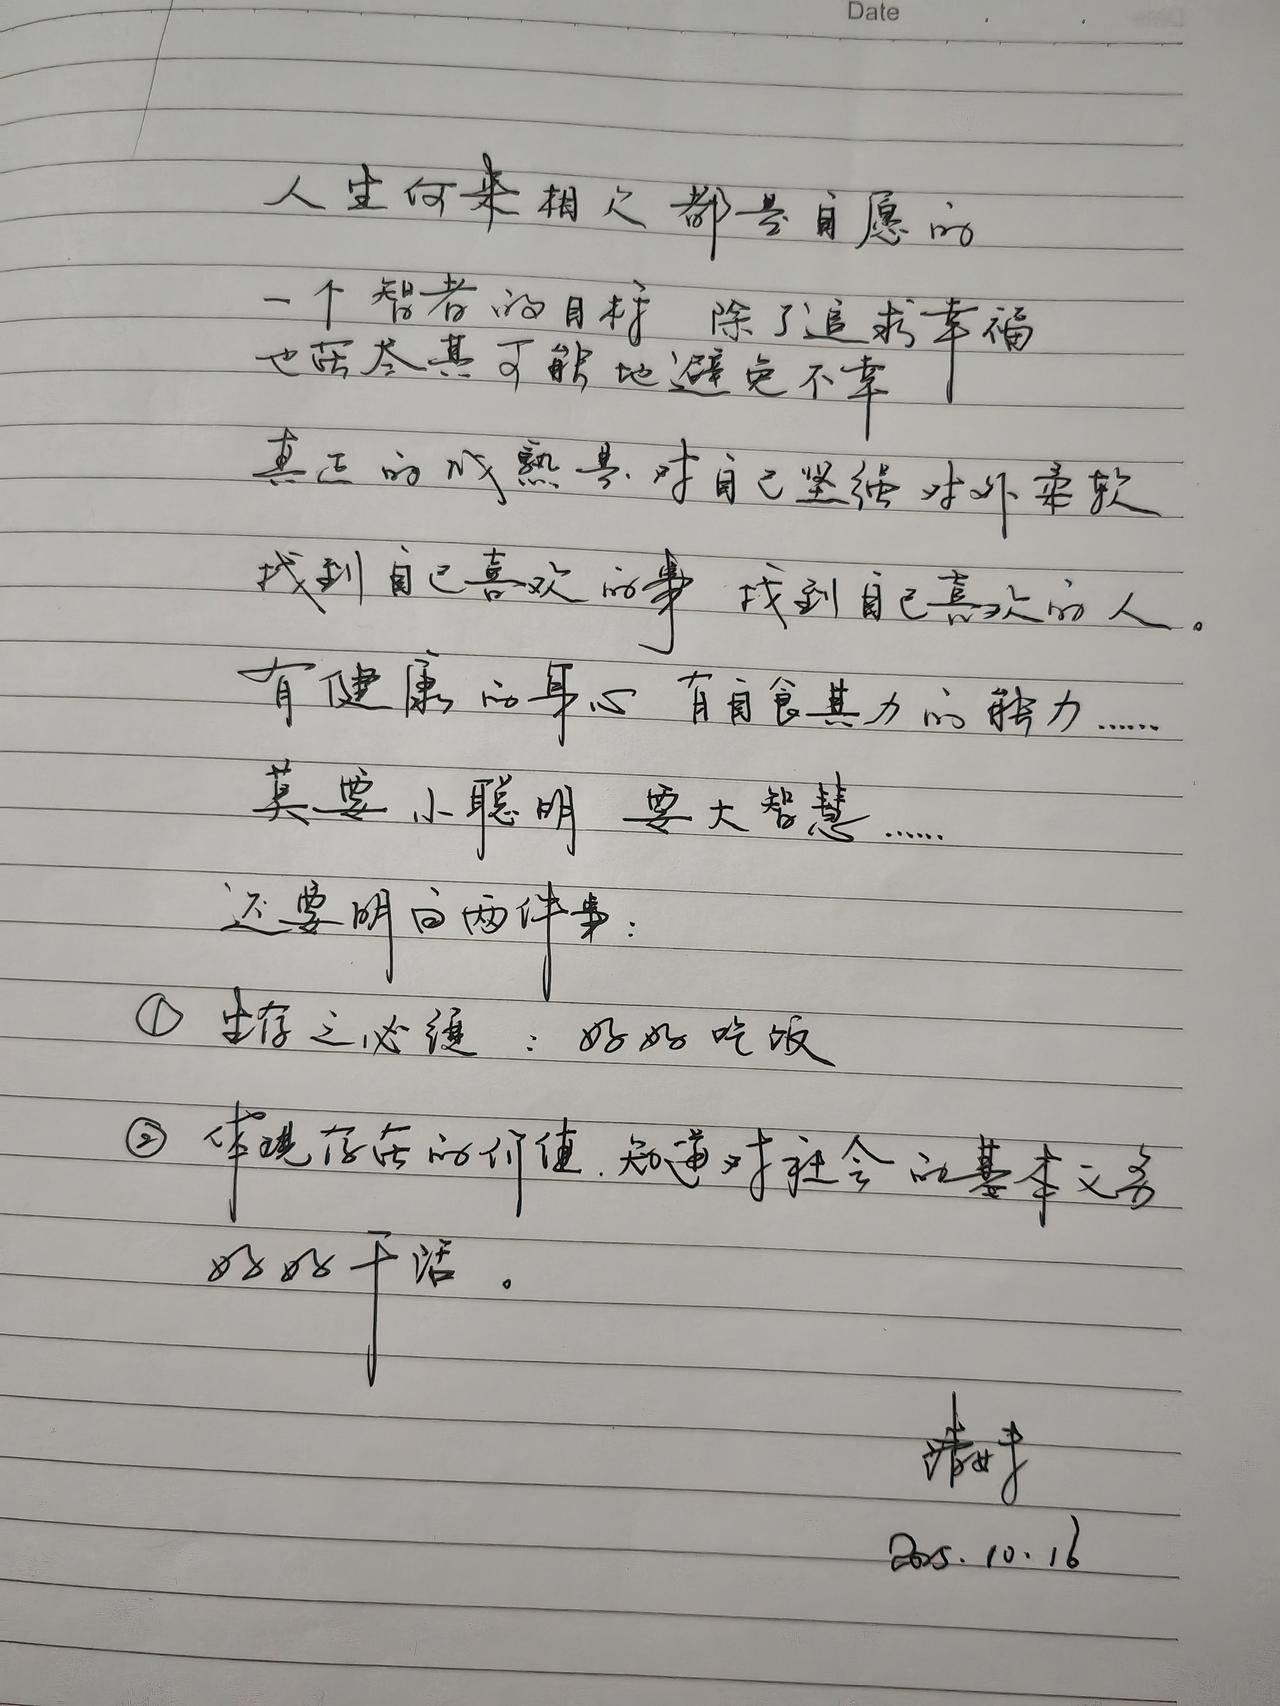 Date
人生何来相欠 都是自愿的
一个智者的目标 除了追求幸福
也在尽其可能地避免不幸
真正的成熟是对自己坚强 对外柔软
找到自己喜欢的事 找到自己喜欢的人。
有健康的身心 有自食其力的能力……
莫要小聪明 要大智慧……
还要明白两件事：
① 生存之必须：好好吃饭
② 体现存在的价值.知道对社会的基本义务
好好干活。
2025.10.16